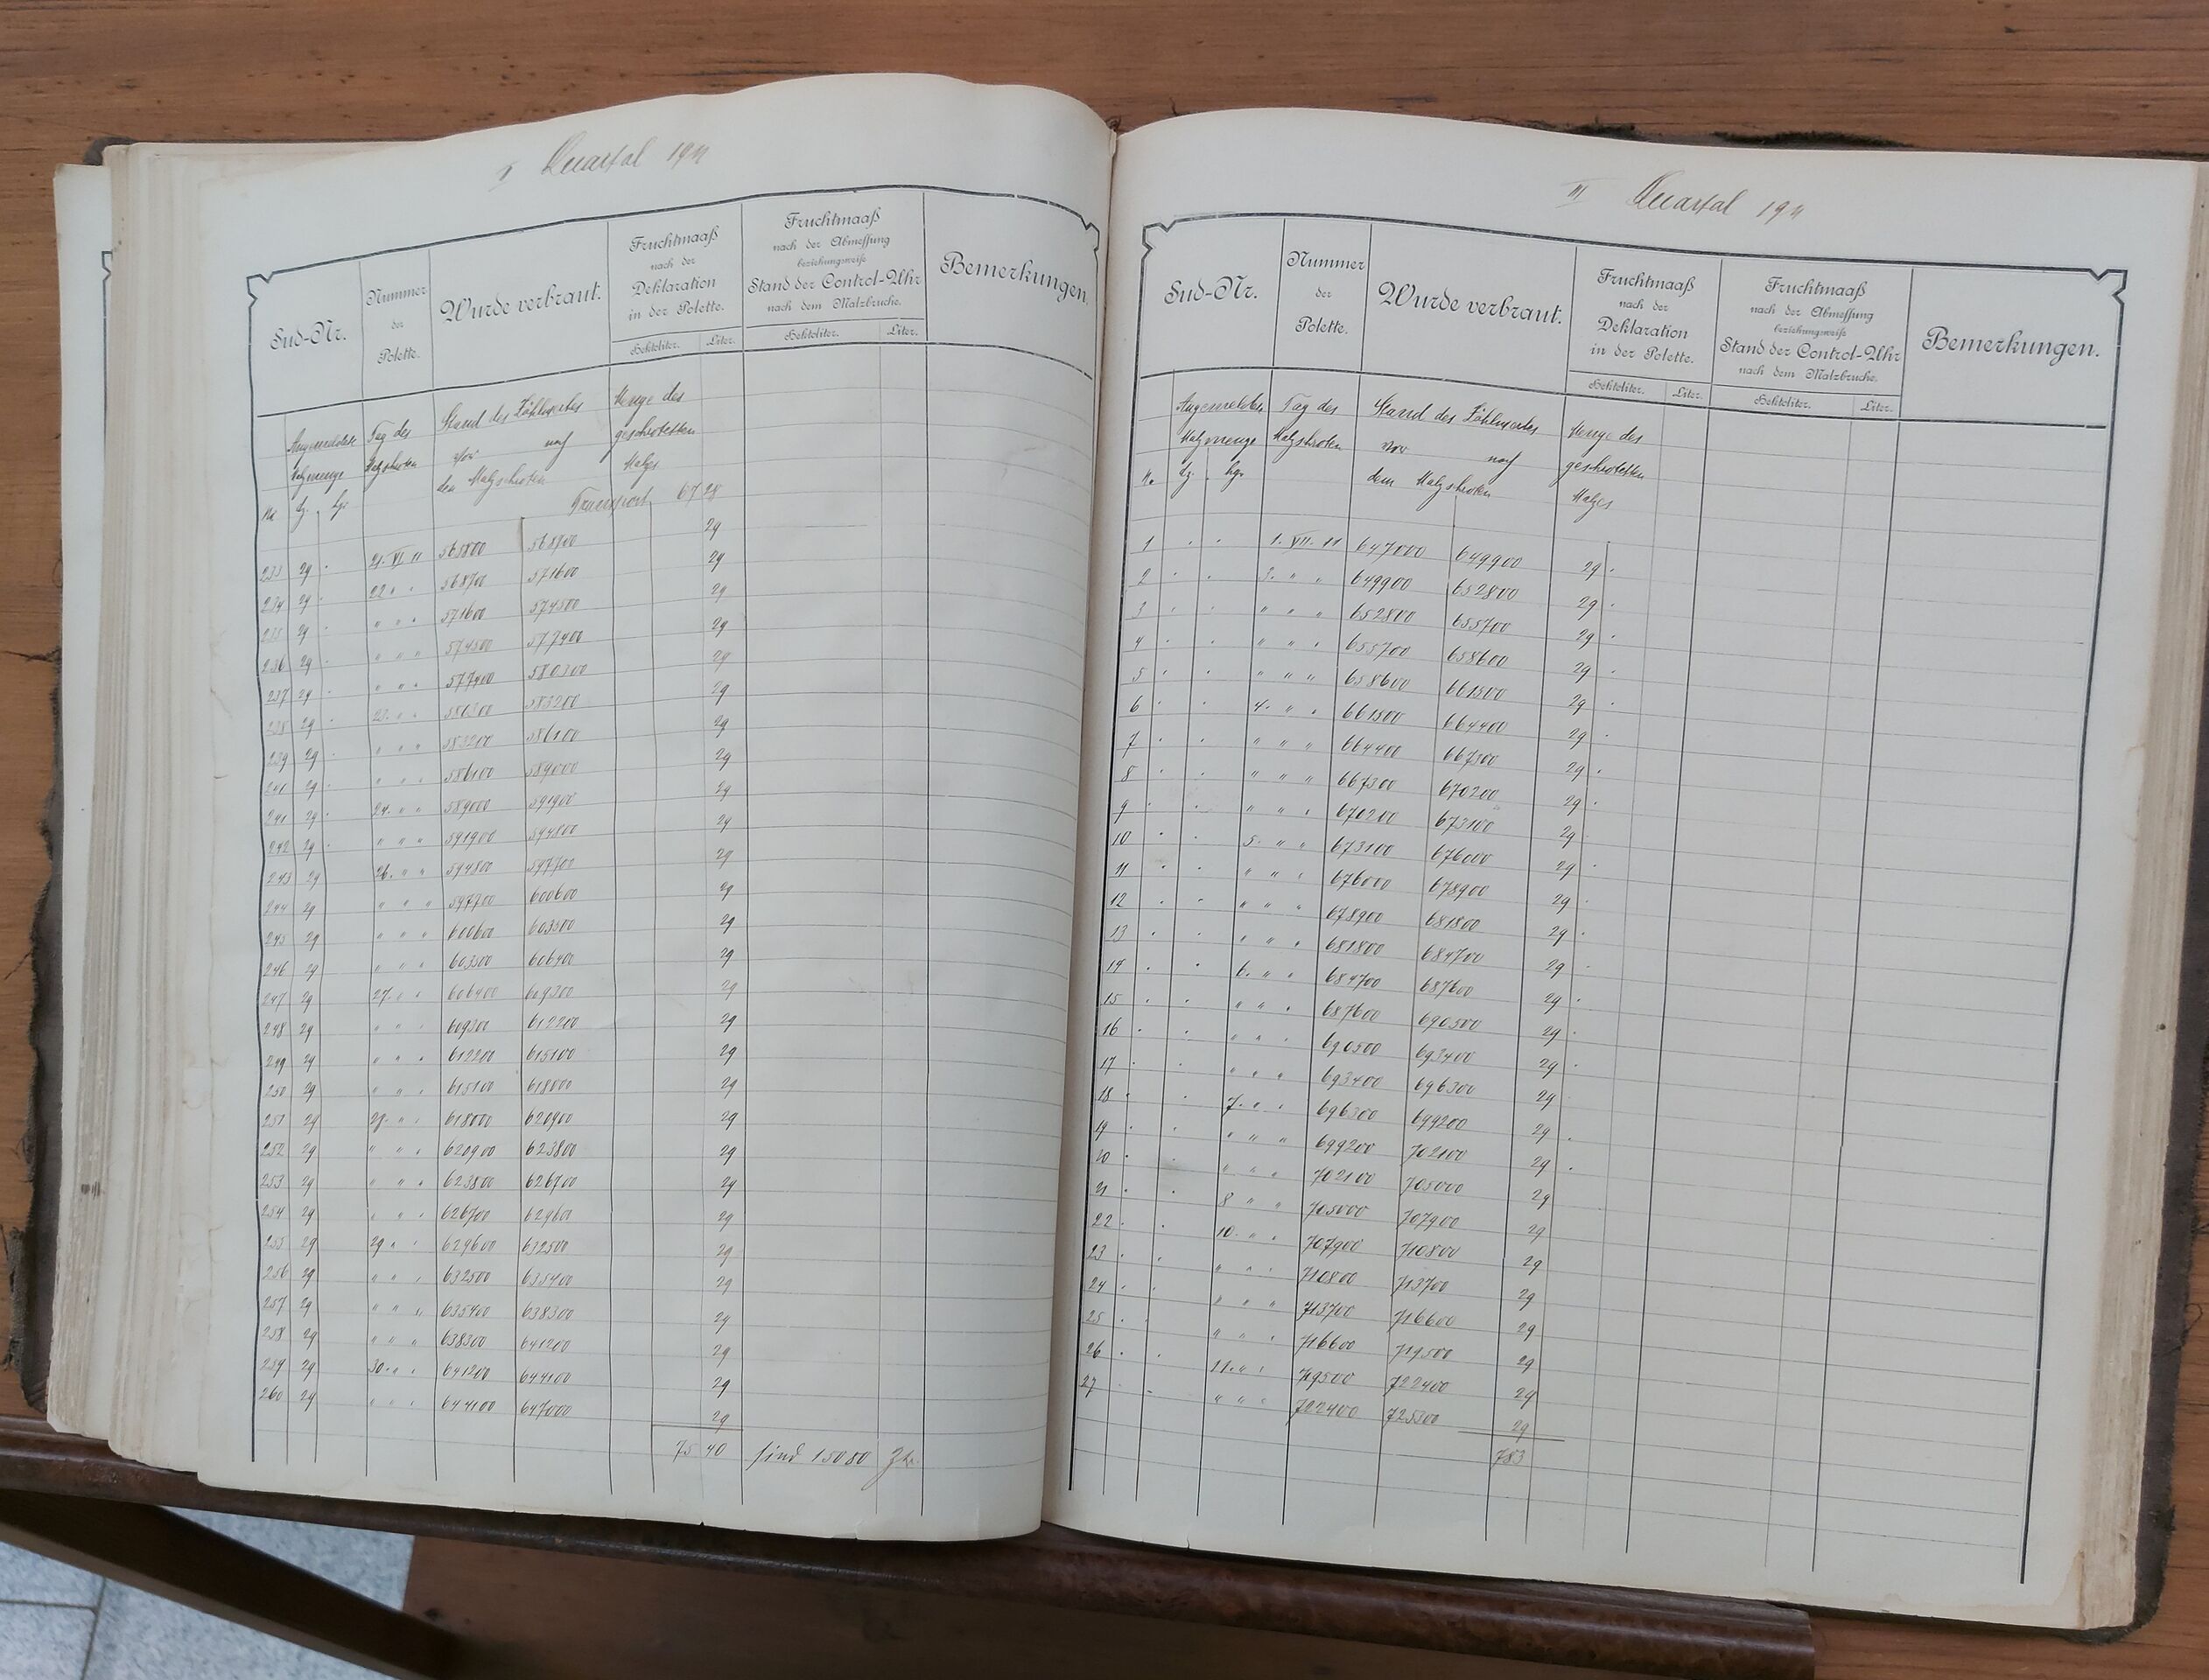 Quartal 1911
Sud-Nr.
Nummer
der
Polette.
Wurde verbraut.
Fruchtmaaß
nach der
Deklaration
in der Polette.
Hektoliter. Liter.
Fruchtmaaß
nach der Abmessung
beziehungsweise
Stand der Control-Uhr
nach dem Malzbruche.
Hektoliter. Liter.
Bemerkungen.
Angemeldete
Malzmenge
No dz. kg.
Tag des
Malzschroten
Stand des Zählwerkes
vor nach
den Malzschroten
Menge des
geschroteten
Malzes
Transport 67 28
233 29 21. VI. 11 565800 568700 29
234 29 22. " " 568700 571600 29
235 29 " " " 571600 574500 29
236 29 " " " 574500 577400 29
237 29 " " " 577400 580300 29
238 29 23. " " 580300 583200 29
239 29 " " " 583200 586100 29
29 " " " 586100 589000 29
241 29 24. " " 589000 591900 29
242 29 " " " 591900 594800 29
243 29 26. " " 594800 597700 29
244 29 " " " 597700 600600 29
245 29 " " " 600600 603500 29
246 29 " " " 603500 606400 29
247 29 27. " " 606400 609300 29
248 29 " " " 609300 612200 29
249 29 " " " 612200 615100 29
250 29 " " " 615100 618000 29
251 29 " " 618000 620900 29
252 29 " " " 620900 623800 29
253 29 " " " 623800 626700 29
254 29 " " " 626700 629600 29
255 29 29 " " 629600 632500 29
256 29 " " " 632500 635400 29
257 29 " " " 635400 638300 29
258 29 " " " 638300 641200 29
259 29 30. " " 641200 644100 29
260 29 " " " 644100 647000 29
75 40 sind 15080
III Quartal 1911
Sud-Nr.
Nummer
der
Polette.
Wurde verbraut.
Fruchtmaaß
nach der
Deklaration
in der Polette.
Hektoliter. Liter.
Fruchtmaaß
nach der Abmessung
beziehungsweise
Stand der Control-Uhr
nach dem Malzbruche.
Hektoliter. Liter.
Bemerkungen.
Angemeldete
Malzmenge
No dz. kg.
Tag des
Malzschroten
Stand des Zählwerkes
vor nach
dem Malzschroten
Menge des
geschroteten
Malzes
1 1. VII. 11 647000 649900 29
2 3. " " 649900 652800 29
3 " " " 652800 655700 29
4 " " " 655700 658600 29
5 " " " 658600 661500 29
6 4. " " 661500 664400 29
7 " " " 664400 667300 29
8 " " " 667300 670200 29
9 " " " 670200 673100 29
10 5. " " 673100 676000 29
11 " " " 676000 678900 29
12 " " " 678900 681800 29
13 " " " 681800 684700 29
14 6. " " 684700 687600 29
15 " " " 687600 690500 29
16 " " " 690500 693400 29
17 " " " 693400 696300 29
18 7. " " 696300 699200 29
19 " " " 699200 702100 29
20 " " " 702100 705000 29
21 8 " " 705000 707900 29
22 10. " " 707900 710800 29
23 " " " 710800 713700 29
24 " " " 713700 716600 29
25 " " " 716600 719500 29
26 11. " " 719500 722400 29
27 " " " 722400 725300 29
783